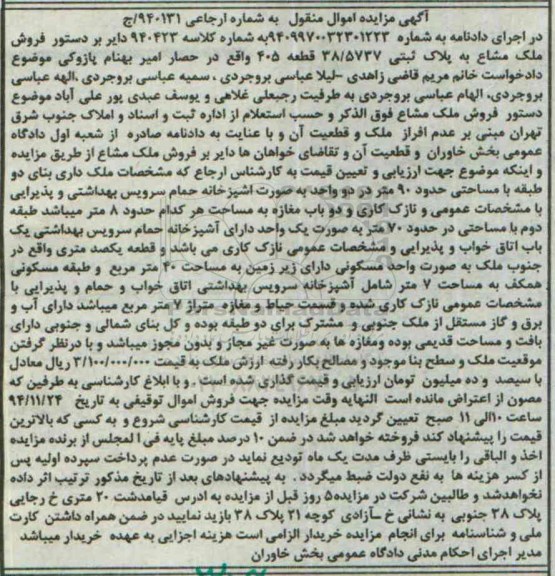 آگهی مزایده اموال منقول به شماره ارجاعی ۹۴۰۱۳۱/ج
در اجرای دادنامه به شماره ۹۴۰۹۹۷۰۰۳۲۳۰۱۲۲۳به شماره کلاسه ۹۴۰۴۲۳ دایر بر دستور فروش
ملک مشاع به پلاک ثبتی ۳۸/۵۷۳۷ قطعه ۴۰۵ واقع در حصار امیر بهنام پازوکی موضوع
دادخواست خانم مریم قاضی زاهدی -لیلا عباسی بروجردی ، سمیه عباسی بروجردی ،الهه عباسی
بروجردی، الهام عباسی بروجردی به طرفیت رجبعلی غلاهی و یوسف عبدی پور علی آباد موضوع
دستور فروش ملک مشاع فوق الذکر و حسب استعلام از اداره ثبت و اسناد و املاک جنوب شرق
تهران مبنی بر عدم افراز ملک و قطعیت آن و با عنایت به دادنامه صادره از شعبه اول دادگاه
عمومی بخش خاوران و قطعیت آن و تقاضای خواهان ها دایر بر فروش ملک مشاع از طریق مزایده
و اینکه موضوع جهت ارزیابی و تعیین قیمت به کارشناس ارجاع که مشخصات ملک داری بنای دو
طبقه با مساحتی حدود ۹۰ متر در دو واحد به صورت اشپزخانه حمام سرویس بهداشتی و پذیرایی
با مشخصات عمومی و نازک کاری و دو باب مغازه به مساحت هر کدام حدود ۸ متر میباشد طبقه
دوم با مساحتی در حدود ۷۰ متر به صورت یک واحد دارای آشپزخانه حمام سرویس بهداشتی یک
باب اتاق خواب و پذیرایی و مشخصات عمومی نازک کاری می باشد و قطعه یکصد متری واقع در
جنوب ملک به صورت واحد مسکونی دارای زیر زمین به مساحت ۴۰ متر مربع و طبقه مسکونی
همکف به مساحت ۷ متر شامل آشپزخانه سرویس بهداشتی اتاق خواب و حمام و پذیرایی با
مشخصات عمومی نازک کاری شده و قسمت حیاط و مغازه متراژ ۷ متر مربع میباشد دارای آب و
برق و گاز مستقل از ملک جنوبی و مشترک برای دو طبقه بوده و کل بنای شمالی و جنوبی دارای
بافت و مساحت قدیمی بوده ومغازه ها به صورت غیر مجاز و بدون مجوز میباشد و با درنظر گرفتن
موقعیت ملک و سطح بنا موجود و مصالح بکار رفته ارزش ملک به قیمت ۳/۱۰۰/۰۰۰/۰۰۰ ریال معادل
با سیصد و ده میلیون تومان ارزیابی و قیمت گذاری شده است . و با ابلاغ کارشناسی به طرفین که
مصون از اعتراض مانده است النهایه وقت مزایده جهت فروش اموال توقیفی به تاریخ ۹۴/۱۱/۲۴
ساعت ۱۰الی ۱۱ صبح تعیین گردید مبلغ مزایده از قیمت کارشناسی شروع و به کسی که بالاترین
قیمت را پیشنهاد کند فروخته خواهد شد در ضمن ۱۰ درصد مبلغ پایه فی ا لمجلس از برنده مزایده
اخذ و الباقی را بایستی ظرف مدت یک ماه تودیع نماید در صورت عدم پرداخت سپرده اولیه پس
از کسر هزینه ها به نفع دولت ضبط میگردد . به پیشنهادهای بعد از تاریخ مذکور ترتیب اثر داده
نخواهدشد و طالبین شرکت در مزایده۵ روز قبل از مزایده به ادرس قیامدشت ۲۰ متری خ رجایی
پلاک ۳۸ جنوبی به نشانی خ -آزادی کوچه ۲۱ پلاک ۳۸ بازید نمایید در ضمن همراه داشتن کارت
ملی و شناسنامه برای انجام مزایده خریدار الزامی است هزینه اجزایی به عهده خریدار میباشد
مدیر اجرای احکام مدنی دادگاه عمومی بخش خاوران